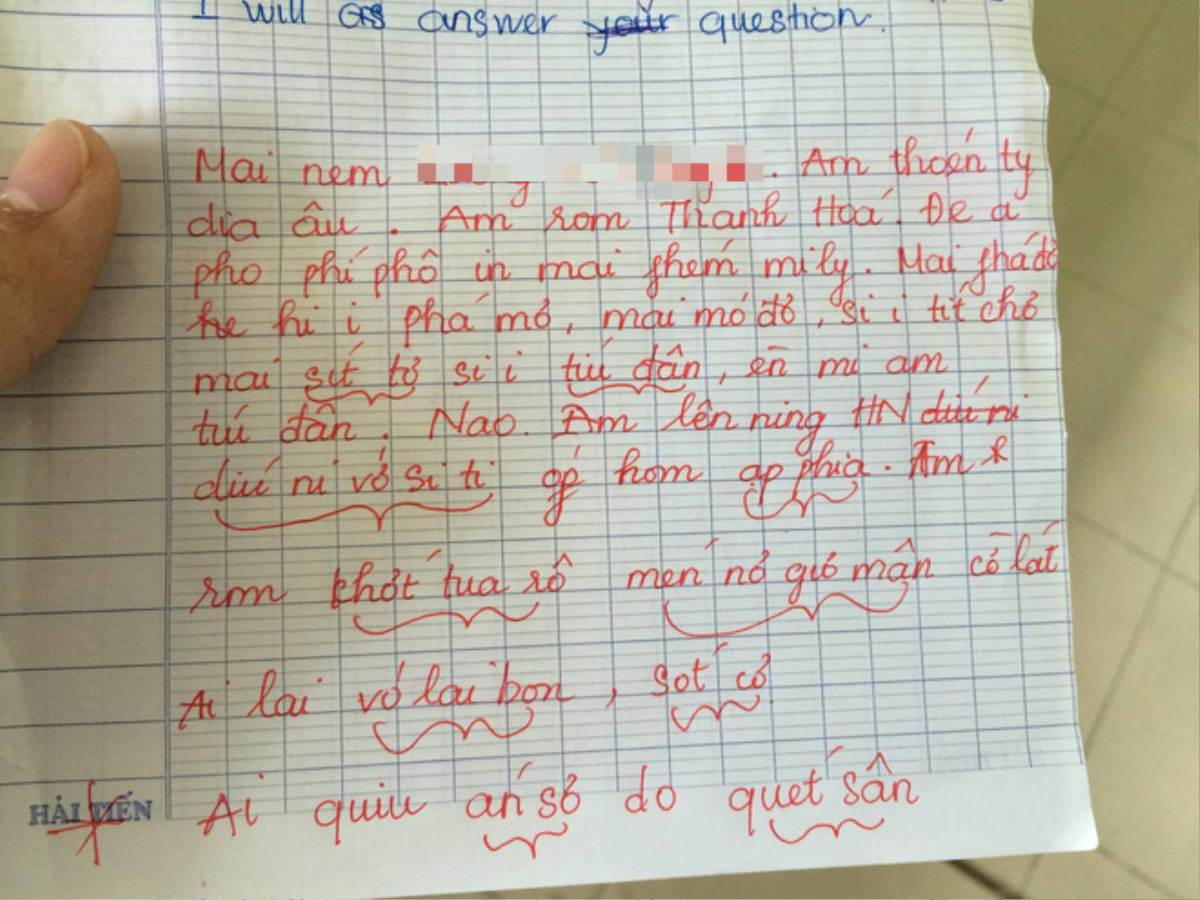 I will as answer your question.
Mai nem . Am thoén ty
dia âu . Am rom Thanh Hoá. Đe a
pho phí phô in mai phem mi ly. Mai phá đở
he hi i phá mở, mai mó đở, si i tít chở
mai sít tở si i tiú đân, en mi am
tiú đân. Nao. Am lên ning HN diú ni
diú ni vở si ti gp hom ạp phia. Am
rom khớt tua rô men nở giỏ mân cỏ lát
Ai lai vó lai bon , sot cở
HẢI TIẾN Ai quiu án sở do quet sân